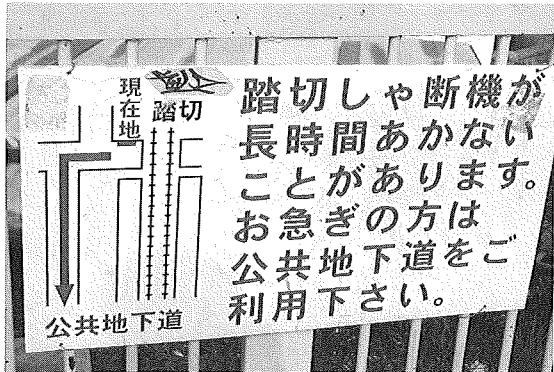 現在地
踏切
公共地下道
踏切しゃ断機が
長時間あかない
ことがあります。
お急ぎの方は
公共地下道をご
利用下さい。